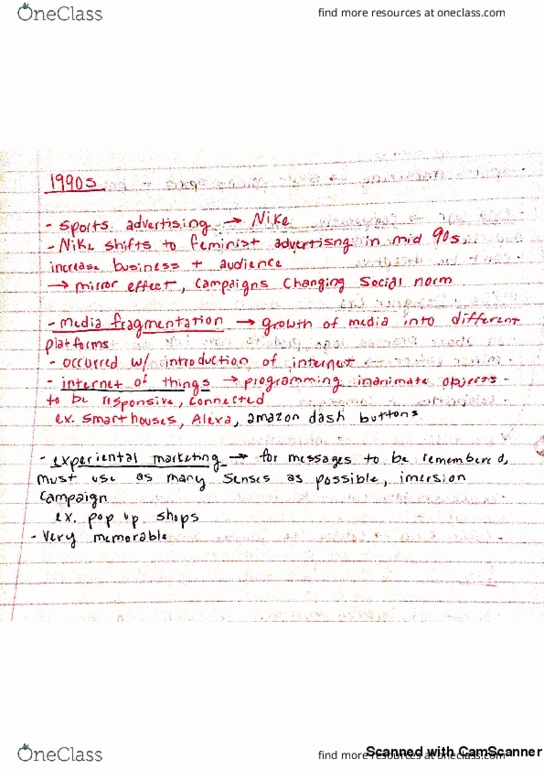 OneClass find more resources at oneclass.com
1990s
- sports advertising → Nike
- Nike shifts to feminist advertisng in mid 90s,
increase business + audience
→ mirror effect, campaigns changing social norm
- media fragmentation → growth of media into different
platforms
- occurred w/ introduction of internet
- internet of things → programming inanimate objects
to be responsive, connected
ex. smart houses, Alexa, amazon dash buttons
- experiental marketing → for messages to be remembered,
must use as many senses as possible, imersion
campaign
ex. pop up shops
- very memorable
OneClass find more resources at oneclass.com
Scanned with CamScanner